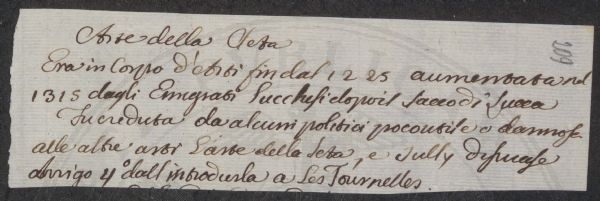 Arte della Seta
209
Era in Corpo d'Arti fin dal 1225 aumentata nel
1315 dagli Emigrati Lucchesi dopo il Sacco di Lucca
Fu creduta da alcuni politici poco utile o dannosa
alle altre arti l'arte della Seta, e Sully disuase
Arrigo 4º dall'introdurla a Les Tournelles.